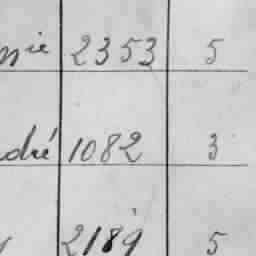 nie 2353 5
dré 1082 3
2189 5